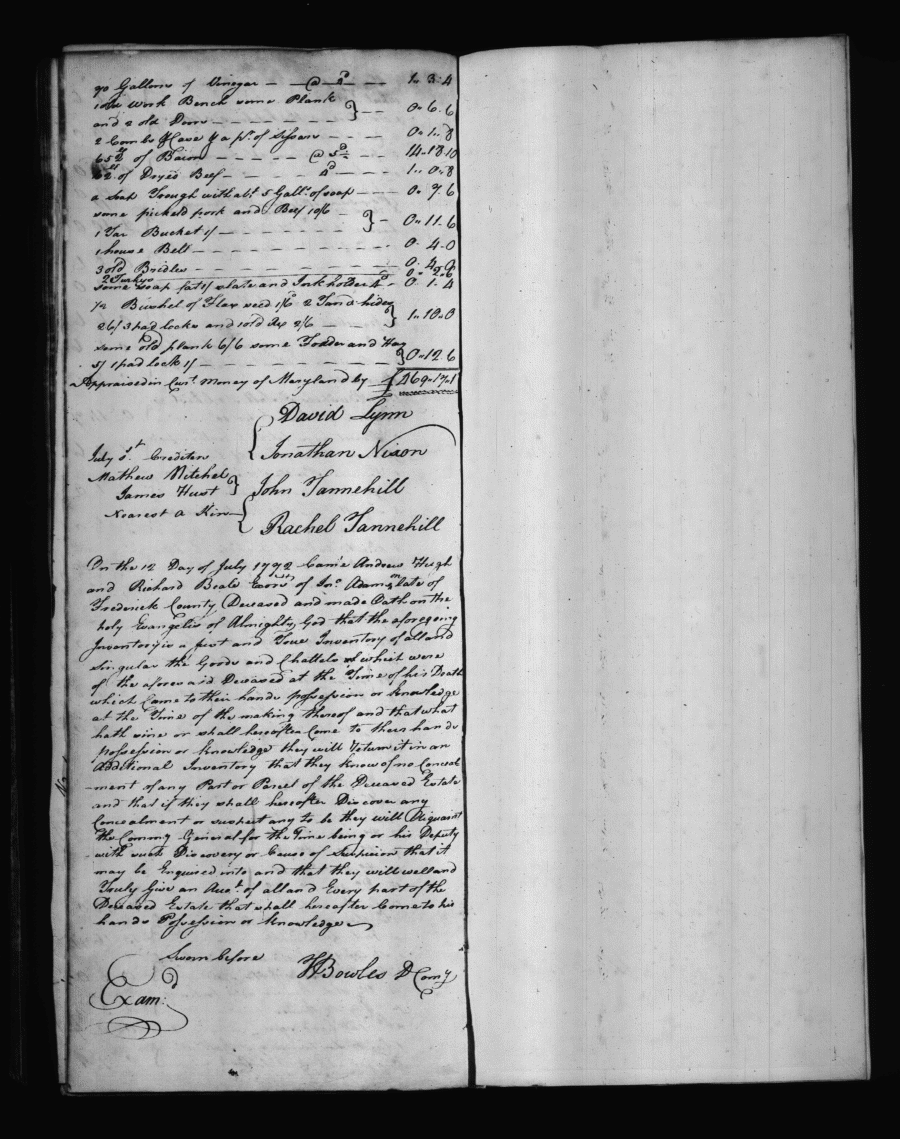 70 Gallons of Vinegar — @ 4d — 1„ 3„ 4
1 old Work Bench some Plank
and 2 old Doors — — — } — 0„ 6„ 6
2 Combs & Case & a pr. of — — — 0„ 1„ 8
of Bacon — — — @ 5d — — 14„ 18„ 10
of Dryed Beef — — 4d — — 1„ 0„ 8
a Soap Trough with abt. 5 Galls. of soap — — 0„ 7„ 6
some pickeld pork and Beef 10/6 —
1 Tar Bucket 1/ — — — } — 0„ 11„ 6
1 house Bell — — — 0„ 4„ 0
3 old Bridles — — — 0„ 4„
2 Turkys — — — 0„ 2„ 6
some soap fat 1/ slate and Ink holder 4d — 0„ 1„ 4
1/2 Bushel of Flax seed 1/6 2 Tan'd hides
26/ 3 pad locks and 1 old Ax 2/6 — — } 1„ 10„ 0
some old plank 6/6 some Fodder and Hay
5/ 1 pad lock 1/ — — — } 0„ 12„ 6
Appraised in Curt. Money of Maryland by — £469„ 17„ 1
David Lynn
Jonathan Nixon
July 5th Creditors
Mathew Mitchel
James Hust
John Tannehill
Nearest a Kin
Rachel Tannehill
On the 12 Day of July 1772 Came Andrew Hugh
and Richard Beals Exors of Jno. Adamson late of
Frederick County Deceased and made Oath on the
holy Evangelis of Almighty God that the aforegoing
Inventory is a just and True Inventory of all and
singular the Goods and Chattels which were
of the aforesaid Deceased at the Time of his Death
which Came to their hands possession or knowledge
at the Time of the making thereof and that what
hath sine or shall hereafter Come to their hands
possession or knowledge they will Return it in an
Additional Inventory that they know of no Conceal
-ment of any Part or Parcel of the Deceased Estate
and that if they shall hereafter Discover any
Concealment or suspect any to be they will Acquaint
the Commy General for the Time being or his Deputy
with such Discovery or Cause of Suspicion that it
may be Enquired into and that they will well and
Truly Give an Acct. of all and Every part of the
Deceased Estate that shall hereafter Come to his
hands Possession or knowledge
Sworn before
H Bowles D Comy
Examd.